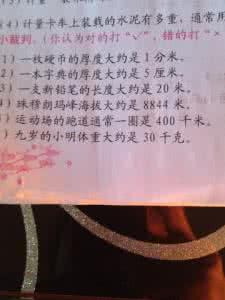 (4)计量卡车上装载的水泥有多重,通常用
小裁判。(你认为对的打“√”,错的打“×
1)一枚硬币的厚度大约是1分米。
2)一本字典的厚度大约是5厘米。
3)一支新铅笔的长度大约是20米。
)珠穆朗玛峰海拔大约是8844米。
)运动场的跑道通常一圈是400千米。
)九岁的小明体重大约是30千克。